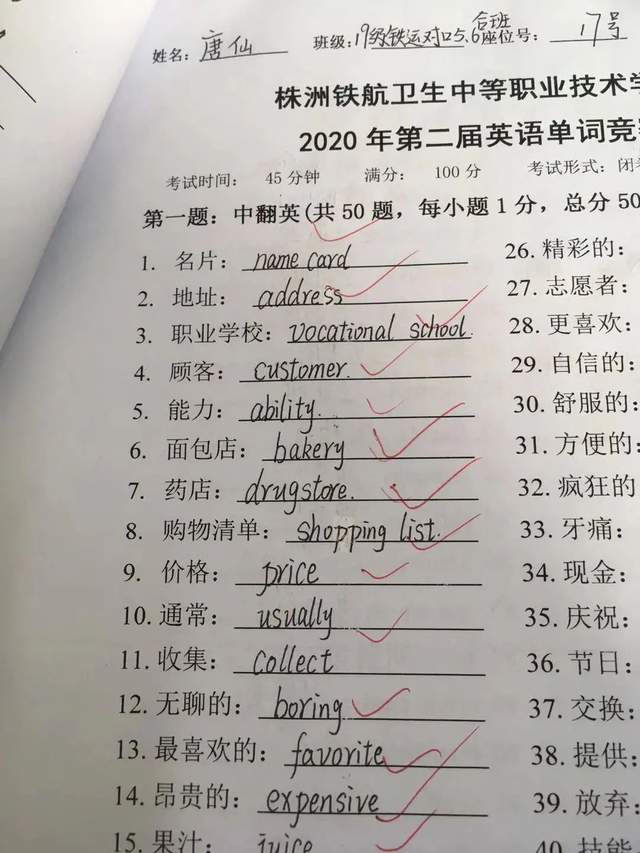 姓名：唐仙 班级：19级铁运对口5.6合班 座位号：17号
株洲铁航卫生中等职业技术学
2020年第二届英语单词竞
考试时间： 45分钟 满分： 100分 考试形式：闭
第一题：中翻英(共50题，每小题1分，总分50
1. 名片：name card 26. 精彩的：
2. 地址：address 27. 志愿者：
3. 职业学校：vocational school. 28. 更喜欢：
4. 顾客：customer. 29. 自信的：
5. 能力：ability. 30. 舒服的：
6. 面包店：bakery 31. 方便的：
7. 药店：drugstore. 32. 疯狂的
8. 购物清单：shopping list. 33. 牙痛：
9. 价格：price 34. 现金：
10. 通常：usually 35. 庆祝：
11. 收集：collect 36. 节日：
12. 无聊的：boring 37. 交换：
13. 最喜欢的：favorite 38. 提供：
14. 昂贵的：expensive 39. 放弃：
15. 果汁：juice 40. 技能